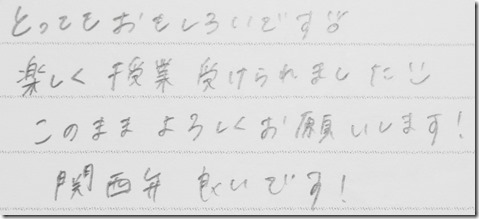 とってもおもしろいです
楽しく授業受けられました
このままよろしくお願いします！
関西弁良いです！